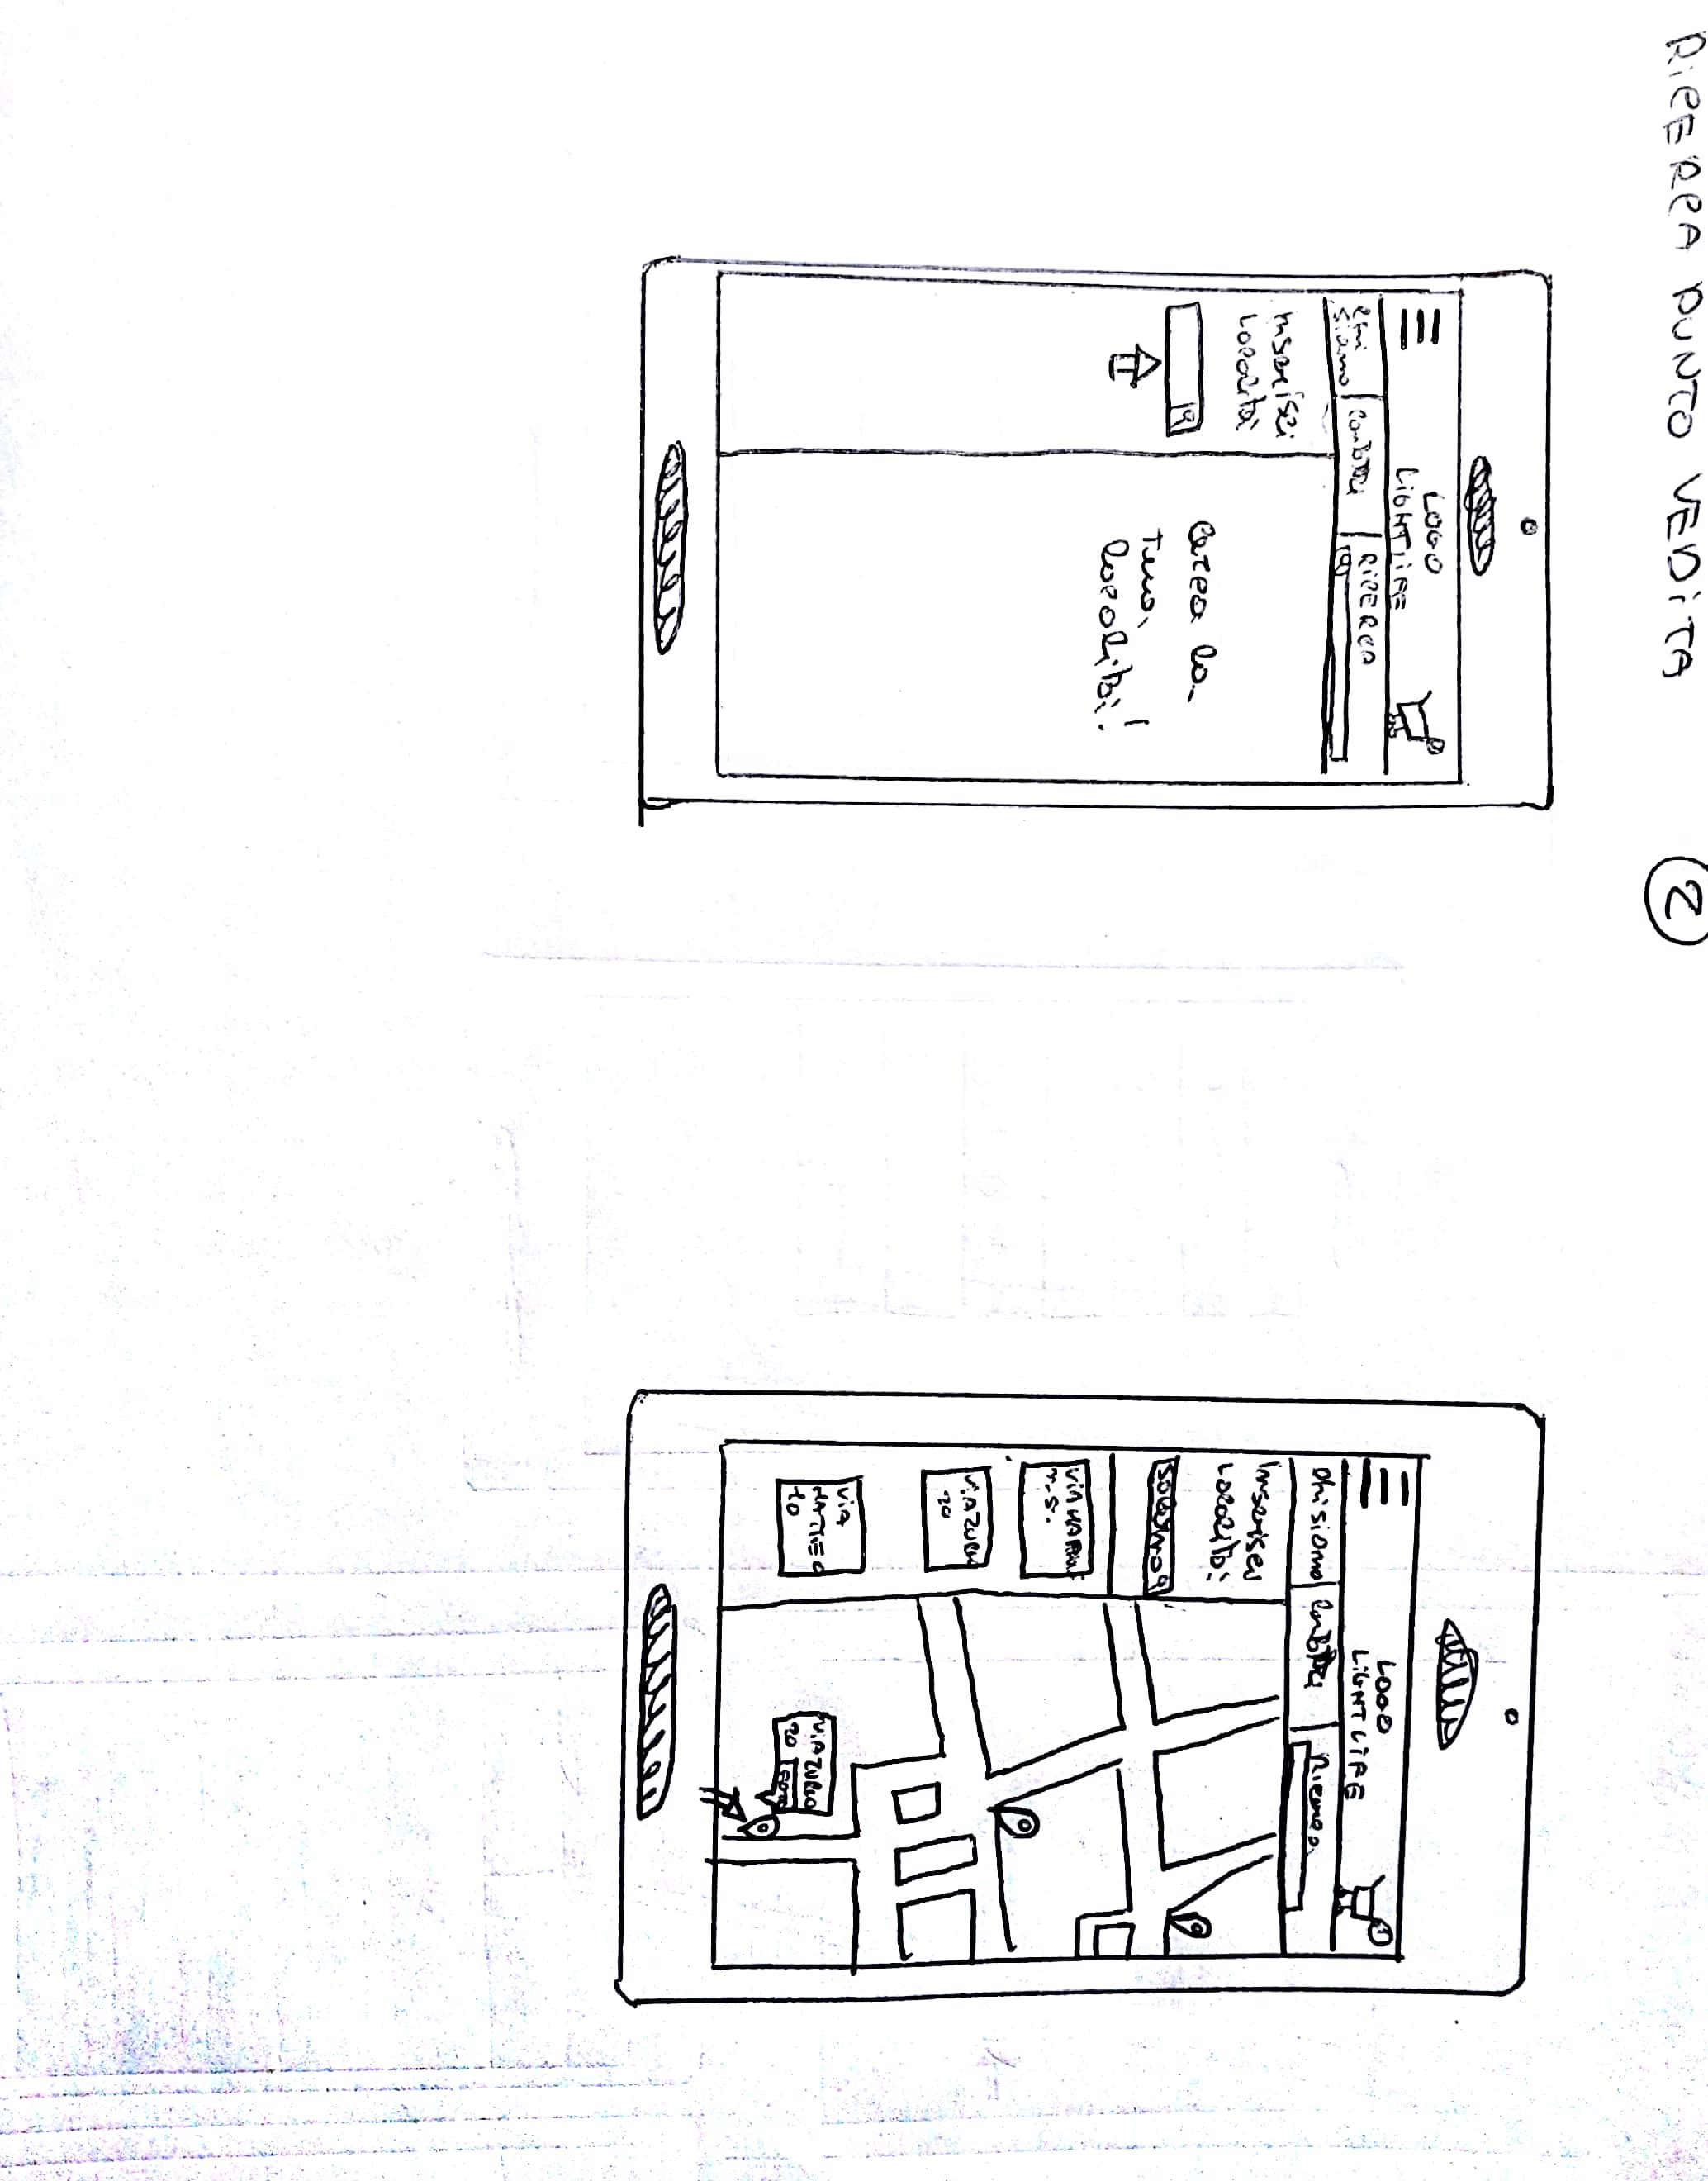 RICERCA PUNTO VENDITA 2
LOGO
LIGHTLIFE
chi siamo
Contatti
RICERCA
Inserisci
Località
Cerca la
Tua
località!
LOGO
LIGHTLIFE
chi siamo
Contatti
Ricerca
Inserisci
Località:
VIA ZURLO
20
VIA
MATTEO
10
VIA ZURLO
20